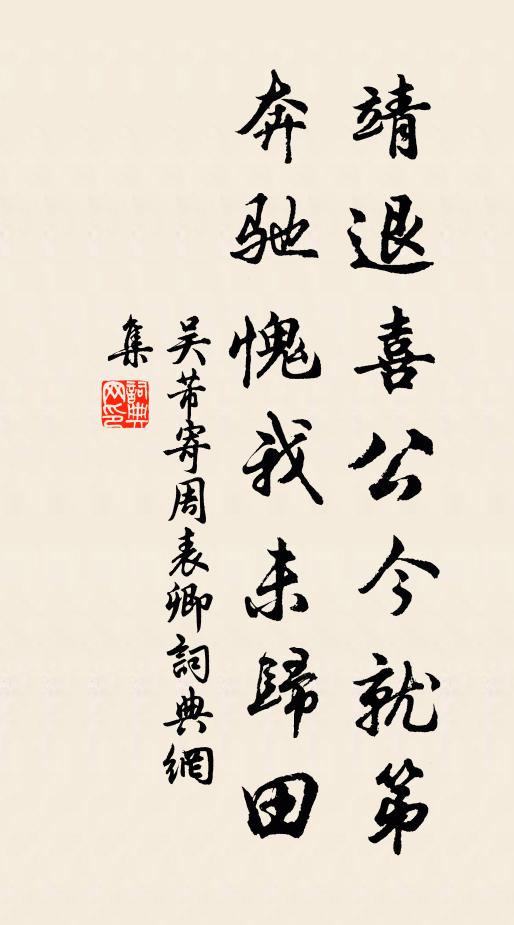 靖退喜公今就第
奔馳愧我未歸田
吳芾寄周表卿詞典網
集
詞典
网印